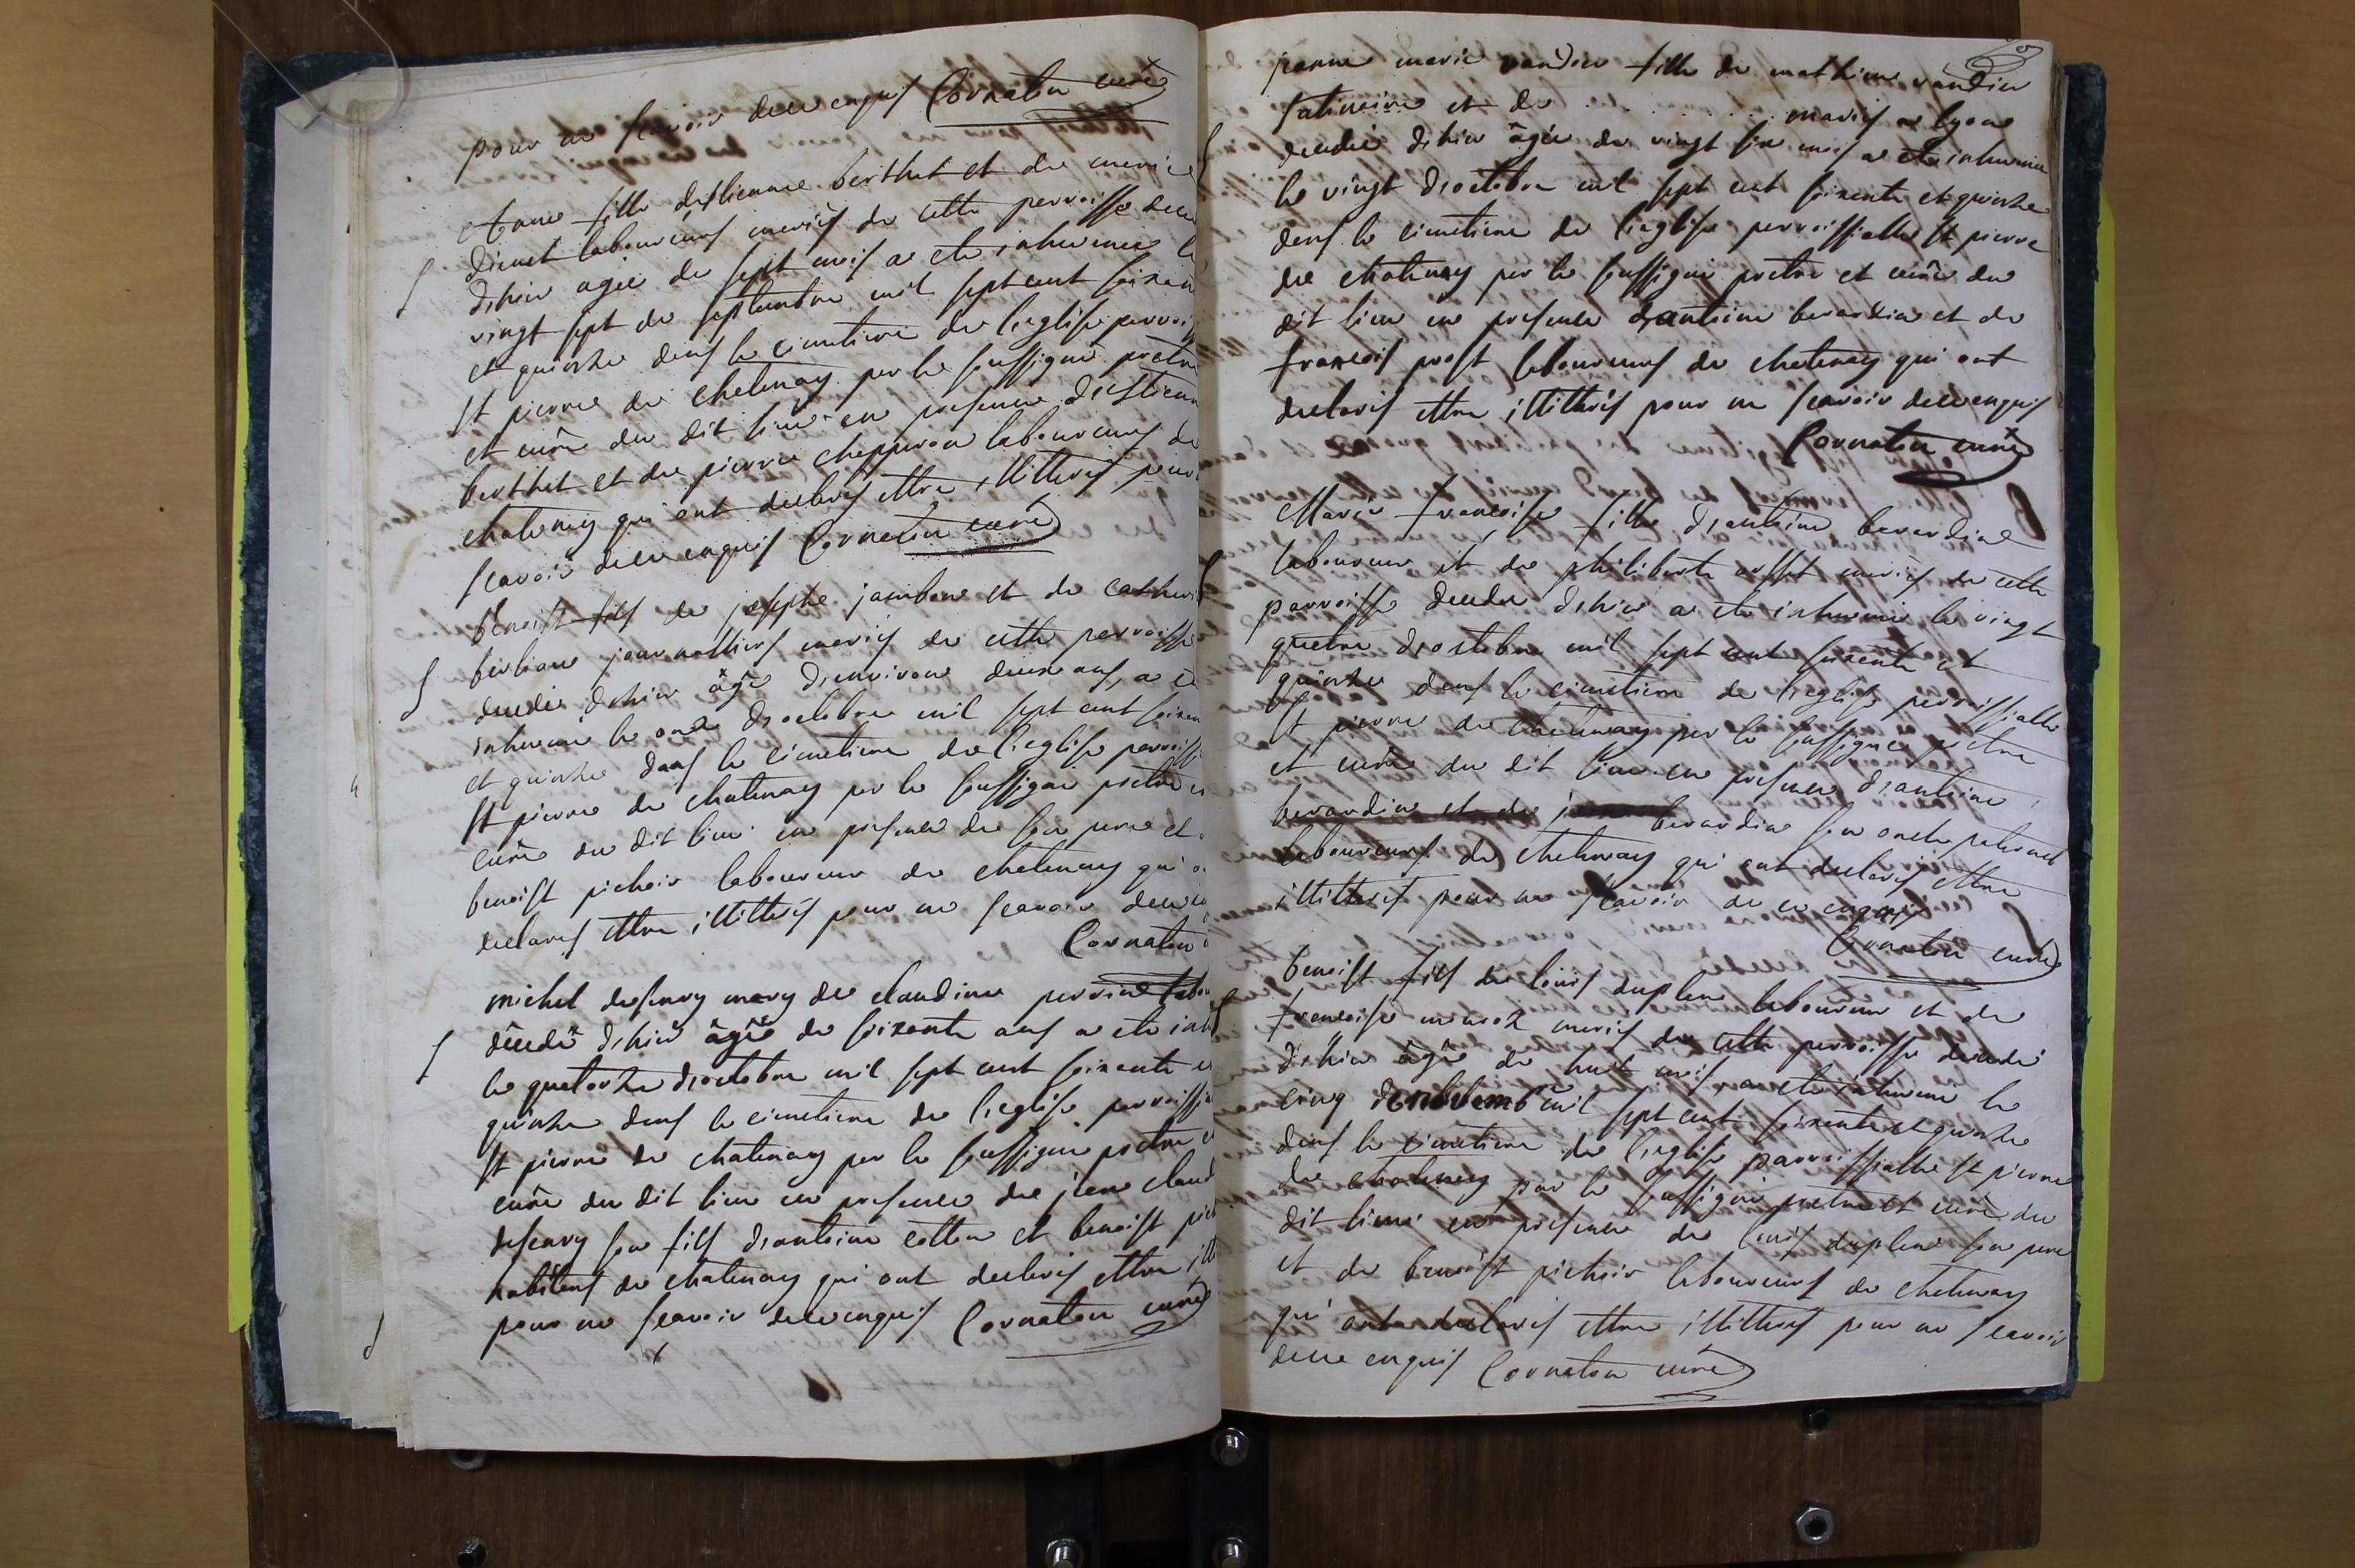 pour ne scavoir dece enquis Cornaton curé
Anne fille destienne berthet et de marie
dimet laboureurs mariés de cette parroisse dece
d'hier agée de sept mois a ete inhumée le
vingt sept de septembre mil sept cent soixan
et quinze dans le cimetiere de l'eglise parroiss
St pierre de chatenay par le soussigné pretre
et curé du dit lieu en presence d'estienne
berthet et de pierre chapperon laboureurs de
chatenay qui ont declarés ettre illitterés pour
scavoir dece enquis Cornaton curé
benoist fils de josephe jambon et de catheri
journalliers mariés de cette parroisse
decedé d'hier âgé d'environ deux ans, a é
inhumé le onze d'octobre mil sept cent soixan
et quinze dans le cimetiere de l'eglise parroissi
St pierre de chatenay par le soussigné pretre e
curé du dit lieu en presence de son pere et
benoist pichoir laboureur de chatenay qui o
declarés ettre illitterés pour ne scavoir dece
Cornaton
michel desenry mary de claudine perrin labou
decedé d'hier âgé de soixante ans a ete inh
le quatorze d'octobre mil sept cent soixante e
quinze dans le cimetiere de l'eglise parroissi
St pierre de chatenay par le soussigné pretre e
curé du dit lieu en presence de jean claud
desenry son fils d'antoine cotton et benoist pich
habitans de chatenay qui ont declarés ettre ill
pour ne scavoir dece enquis Cornaton curé
jeanne marie vandier fille de mathieu vandier
satineire et de . . . . . . . . mariés a lyon
decedée d'hier âgée de vingt six mois a ete inhumée
le vingt d'octobre mil sept cent soixante et quinze
dans le cimetiere de l'eglise parroissialle St pierre
de chatenay par le soussigné pretre et curé du
dit lieu en presence d'antoine berardin et de
francois prost laboureurs de chatenay qui ont
declarés ettre illitterés pour ne scavoir dece enquis
Cornaton curé
Marie francoise fille d'antoine berardin
laboureur et de philiberte mariés de cette
parroisse decedee d'hier a ete inhumée le vingt
quatre d'octobre mil sept cent soixante et
quinze dans le cimetiere de l'eglise parroissialle
St pierre de chatenay par le soussigné pretre
et curé du dit lieu en presence d'antoine
berardin et de berardin son oncle paternel
laboureurs de chatenay qui ont declarés ettre
illitterés pour ne scavoir de ce enquis
Cornaton curé
benoist fils de louis duplen laboureur et de
francoise mariés de cette parroisse decedé
d'hier âgé de huit mois a ete inhumé le
cinq de novemb mil sept cent soixante et quinze
dans le cimetiere de l'eglise parroissialle St pierre
de chatenay par le soussigné pretre et curé du
dit lieu en presence de louis duplen son pere
et de benoist pichoir laboureurs de chatenay
qui ont declarés ettre illitterés pour ne scavoir
dece enquis Cornaton curé